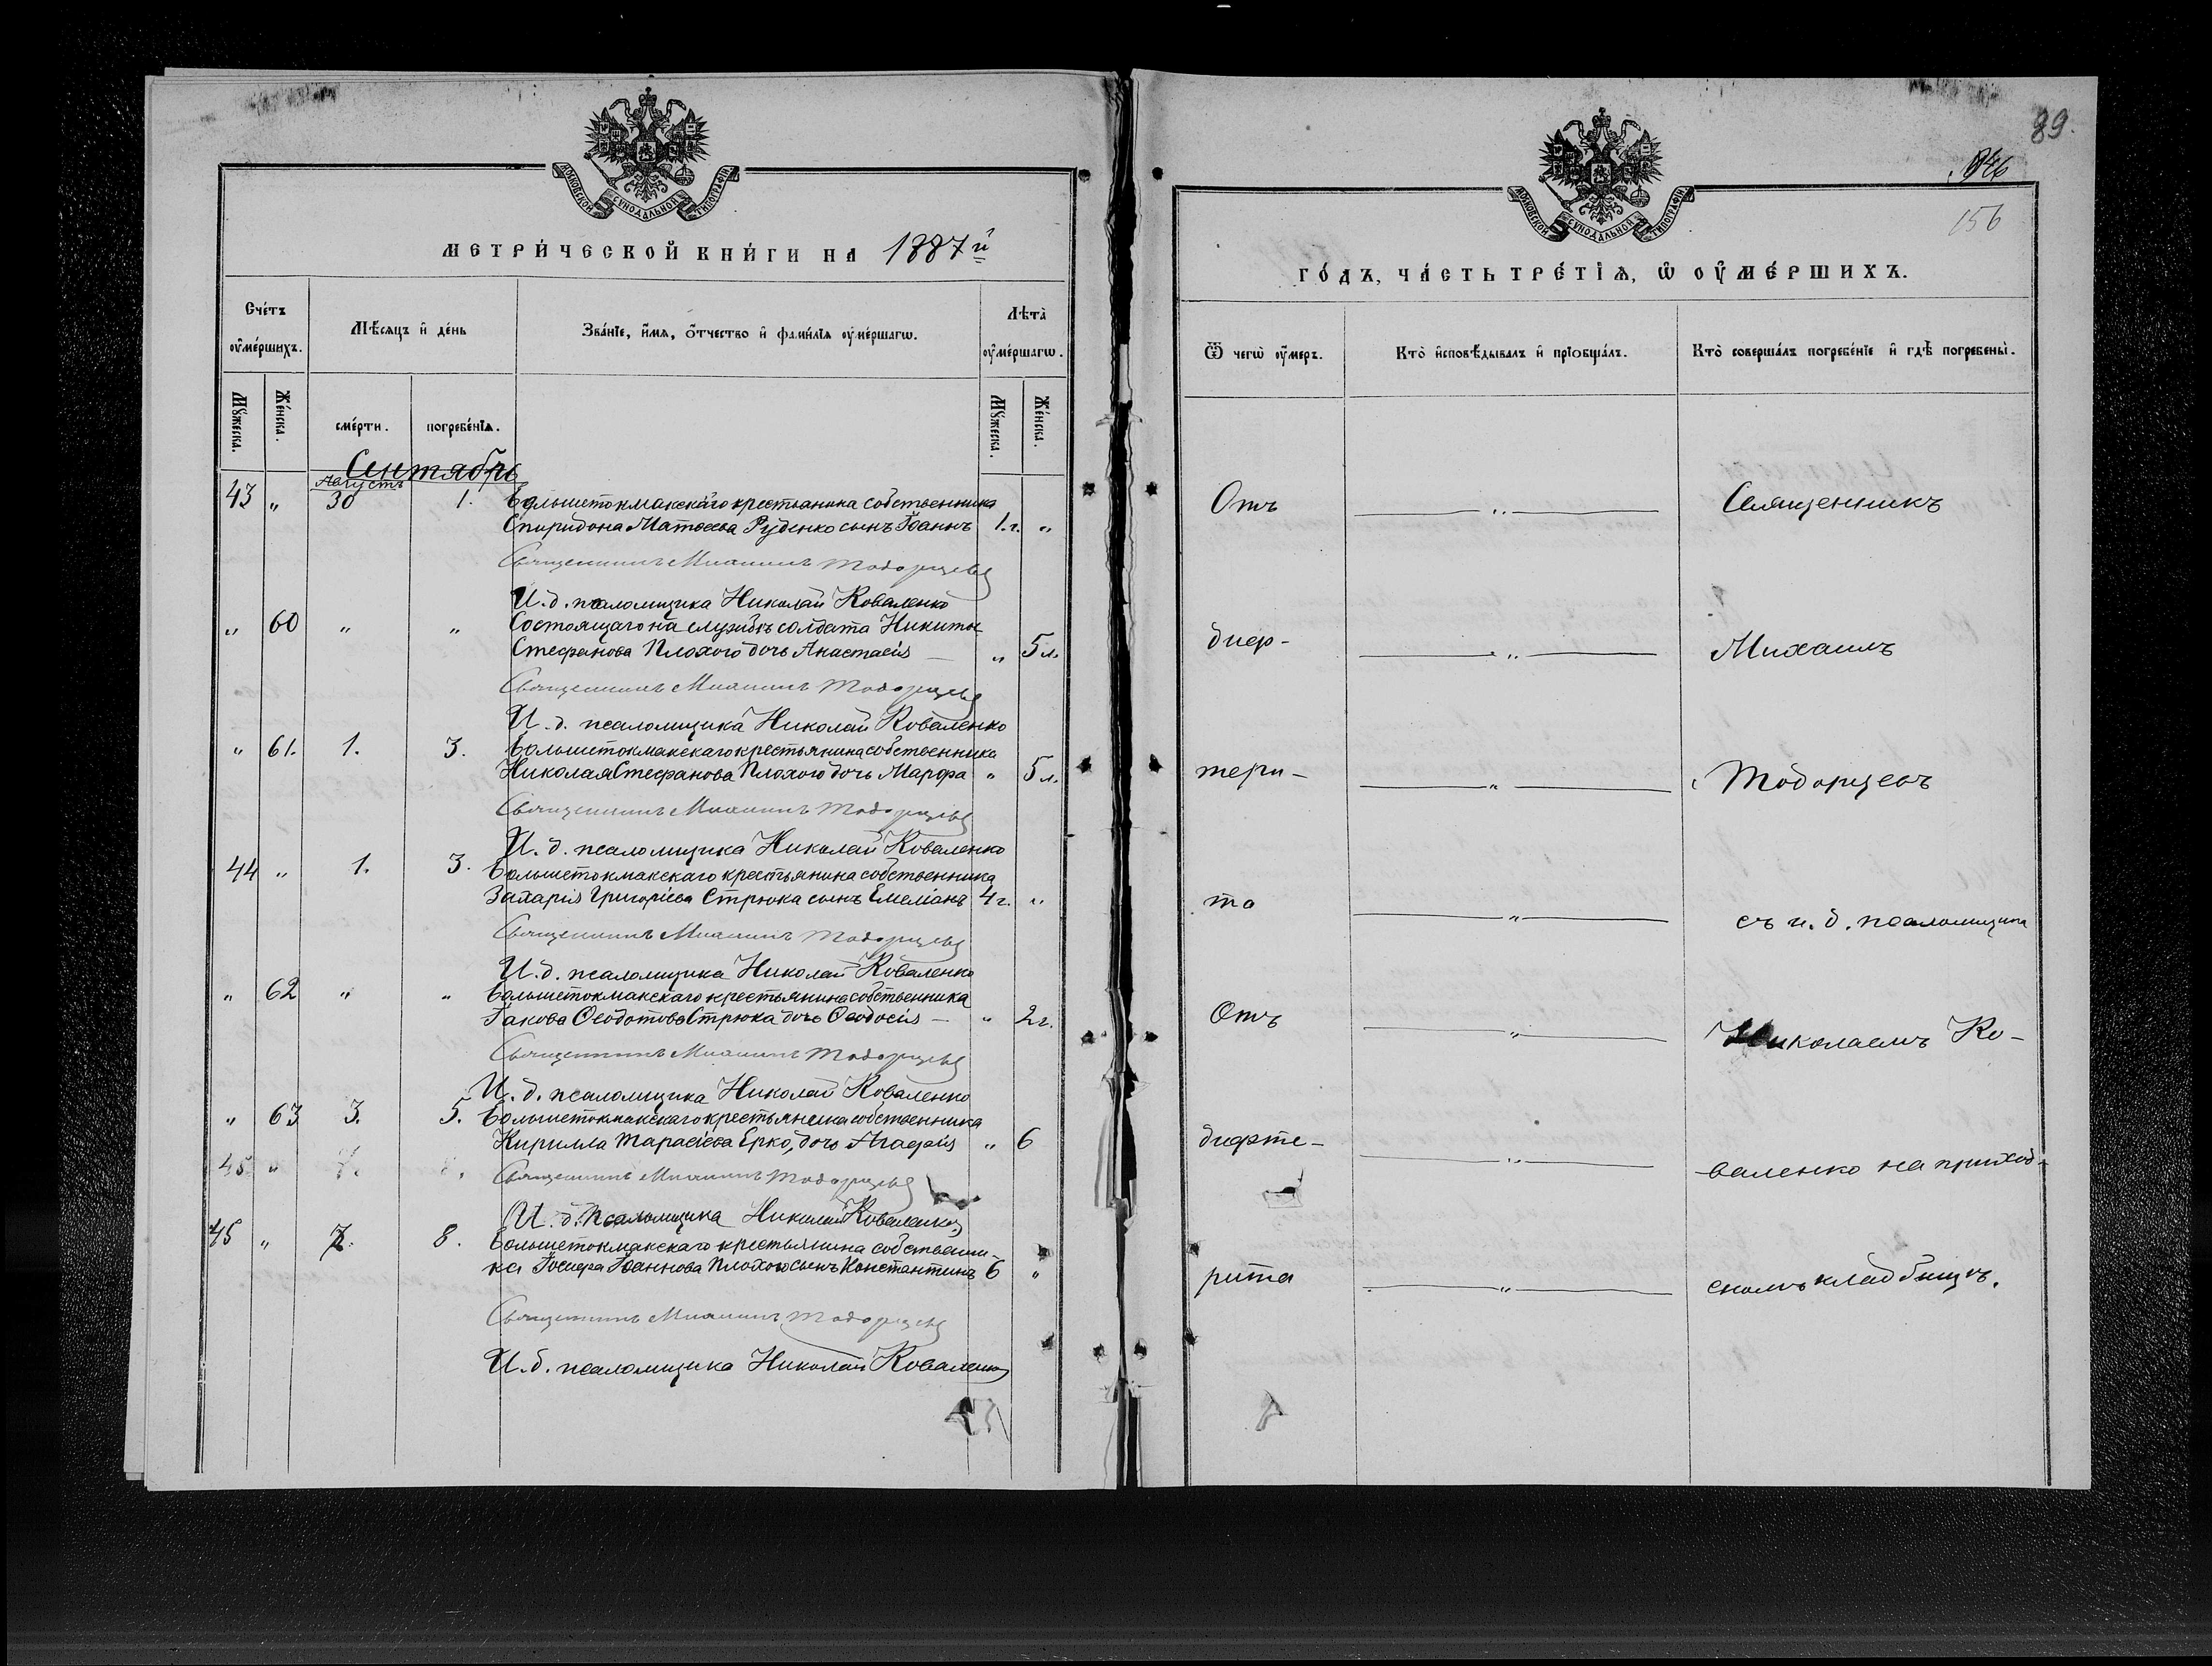 МОСКОВСКОЙ СѴНОДАЛЬНОЙ ТИПОГРАФІИ
МЕТРИ́ЧЕСКОЙ КНИ́ГИ НА 1887й
Сче́тъ оу҆ме́ршихъ.
Мѣ́сяцъ и҆ де́нь
Зва́нїе, и҆́мя, ѻ҆́тчество и҆ фами́лїя оу҆ме́ршагѡ.
Лѣ́та оу҆ме́ршагѡ.
Мꙋ́жеска.
Же́нска.
сме́рти.
погребе́нїѧ.
Мꙋ́жеска.
Же́нска.
Сентябрь
Августъ
43 " 30 1. Большетокмакскаго крестьянина собственника
Спиридона Матѳеева Руденко сынъ Іоаннъ 1.г. "
Священникъ Михаилъ Тодорцевъ
И. д. псаломщика Николай Коваленко
" 60 " " Состоящаго на службѣ солдата Никиты
Стефанова Плохого дочь Анастасія — " 5 л.
Священникъ Михаилъ Тодорцевъ
И. д. псаломщика Николай Коваленко
" 61. 1. 3. Большетокмакскаго крестьянина собственника
Николая Стефанова Плохого дочь Марфа " 5 л.
Священникъ Михаилъ Тодорцевъ
И. д. псаломщика Николай Коваленко
44 " 1. 3. Большетокмакскаго крестьянина собственника
Захарія Григоріева Стрюка сынъ Емеліанъ 4 г. "
Священникъ Михаилъ Тодорцевъ
И. д. псаломщика Николай Коваленко
" 62 " " Большетокмакскаго крестьянина собственника
Іакова Ѳеодотова Стрюка дочь Ѳеодосія — " 2 г.
Священникъ Михаилъ Тодорцевъ
И. д. псаломщика Николай Коваленко
" 63 3. 5. Большетокмакскаго крестьянина собственника
Кирилла Тарасіева Ерко, дочь Агафія " 6
45 " Священникъ Михаилъ Тодорцевъ
И. д. Псаломщика Николай Коваленко
45 " 7. 8. Большетокмакскаго крестьянина собственни-
ка Іосифа Іоаннова Плохого сынъ Константинъ 6 "
Священникъ Михаилъ Тодорцевъ
И. д. псаломщика Николай Коваленко
89.
156
МОСКОВСКОЙ СѴНОДАЛЬНОЙ ТИПОГРАФІИ
ГО́ДЪ, ЧА́СТЬ ТРЕ́ТЇѦ, Ѡ҆ ОУ҆МЕ́РШИХЪ.
Ѿ чегѡ̀ оу҆́меръ.
Кто̀ и҆сповѣ́дывалъ и҆ прїѡбща́лъ.
Кто̀ соверша́лъ погребе́нїе и҆ гдѣ̀ погребены̀.
Отъ " Священникъ
диф- " Михаилъ
тери- " Тодорцевъ
та " съ и. д. псаломщика
Отъ " Николаемъ Ко-
дифте- " валенко на приход-
рита " скомъ кладбищѣ.